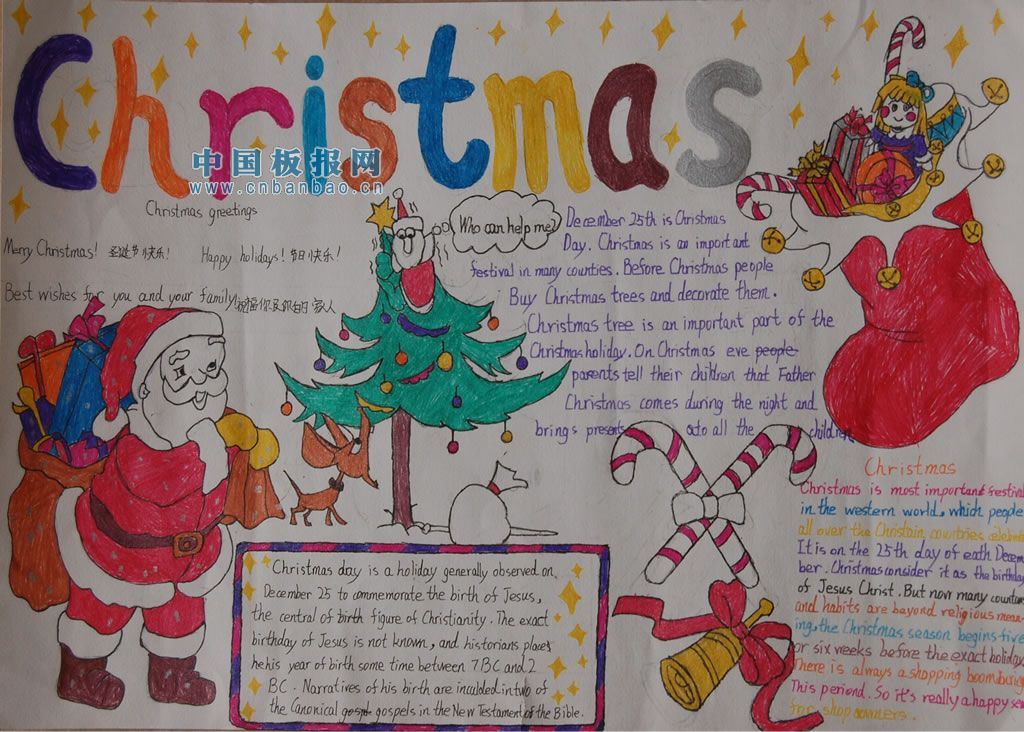 Christmas
中国板报网
www.cnbanbao.cn
Christmas greetings
Merry Christmas! 圣诞节快乐! Happy holidays! 节日快乐!
Best wishes for you and your family 祝福你及你的家人
Who can help me?
December 25th is Christmas
Day. Christmas is an important
festival in many counties. Before Christmas people
Buy Christmas trees and decorate them.
Christmas tree is an important part of the
Christmas holiday. On Christmas eve people
parents tell their children that Father
Christmas comes during the night and
brings presents to all the children.
Christmas day is a holiday generally observed on
December 25 to commemorate the birth of Jesus,
the central of birth figure of Christianity. The exact
birthday of Jesus is not known, and historians places
he his year of birth some time between 7 BC and 2
BC. Narratives of his birth are inculded in two of
the Canonical gospt gospels in the New Testament of the Bible.
Christmas
Christmas is most important festival
in the western world, which people
all over the Christain countries celebra
It is on the 25th day of eath Decem
ber. Christmas consider it as the birthday
of Jesus Christ. But now many countries
and habits are beyond religious mean
ing, the Christmas season begins five
or six weeks before the exact holiday
There is always a shopping boom during
This periond. So it's really a happy se
for shop owners.